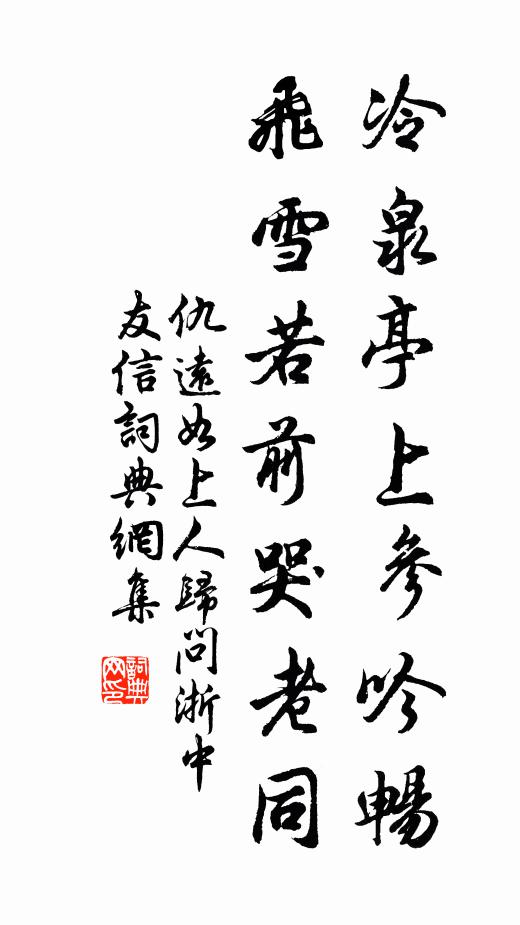 冷泉亭上參吟暢
飛雪若前哭老同
仇遠如上人歸問浙中
友信詞典網集
詞典网印